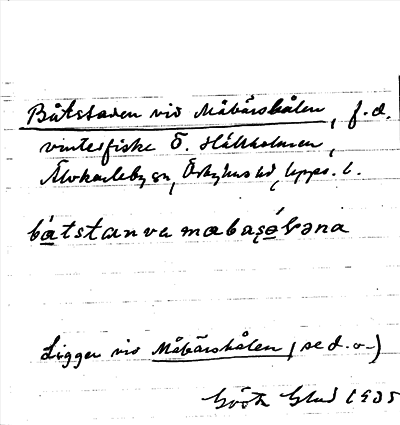 Båtstaden vid Måbärshålen, f.d.
vinterfiske Ö. Hållholmen,
Älvkarleby sn, Örbyhus hd, Upps. l.
båtstanva mabaʂǿvəna
Ligger vid Måbärshålen (se d.o.)
Gösta 1935